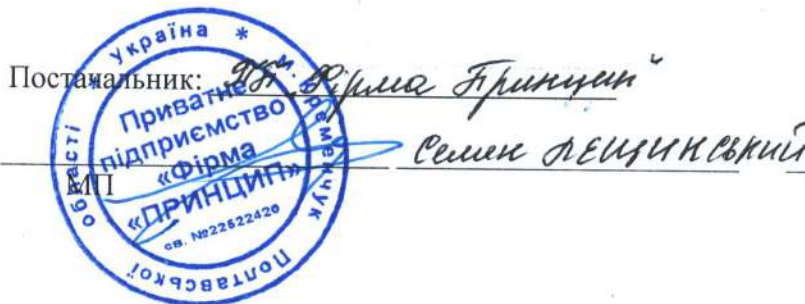 Постачальник: ПП "Фірма Принцип"
Семен ЛЕЩИНСЬКИЙ
МП
Україна * м. Кременчук Полтавської області *
Приватне
підприємство
«Фірма
«ПРИНЦИП»
св. №22522420